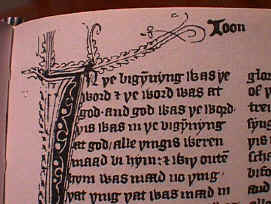 Ioon
In ye bigynyng was ye
word & ye word was at
god · and god was ye word ·
yis was in ye bigynyng
at god / alle yingis weren
maad bi hym : & wiþ outē
hym was maad no ying ·
yat ying yat was maad in
glor
of
tre
yis
sch
bifo
and